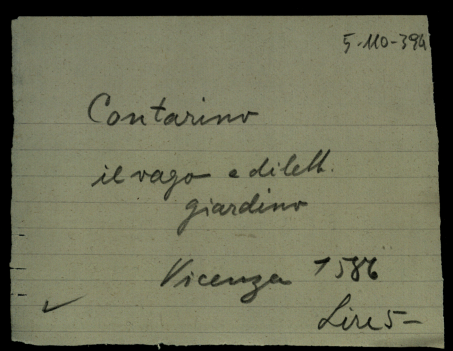 5-110-394
Contarino
il vago e dilett.
giardino
Vicenza 1586
Lire 5-